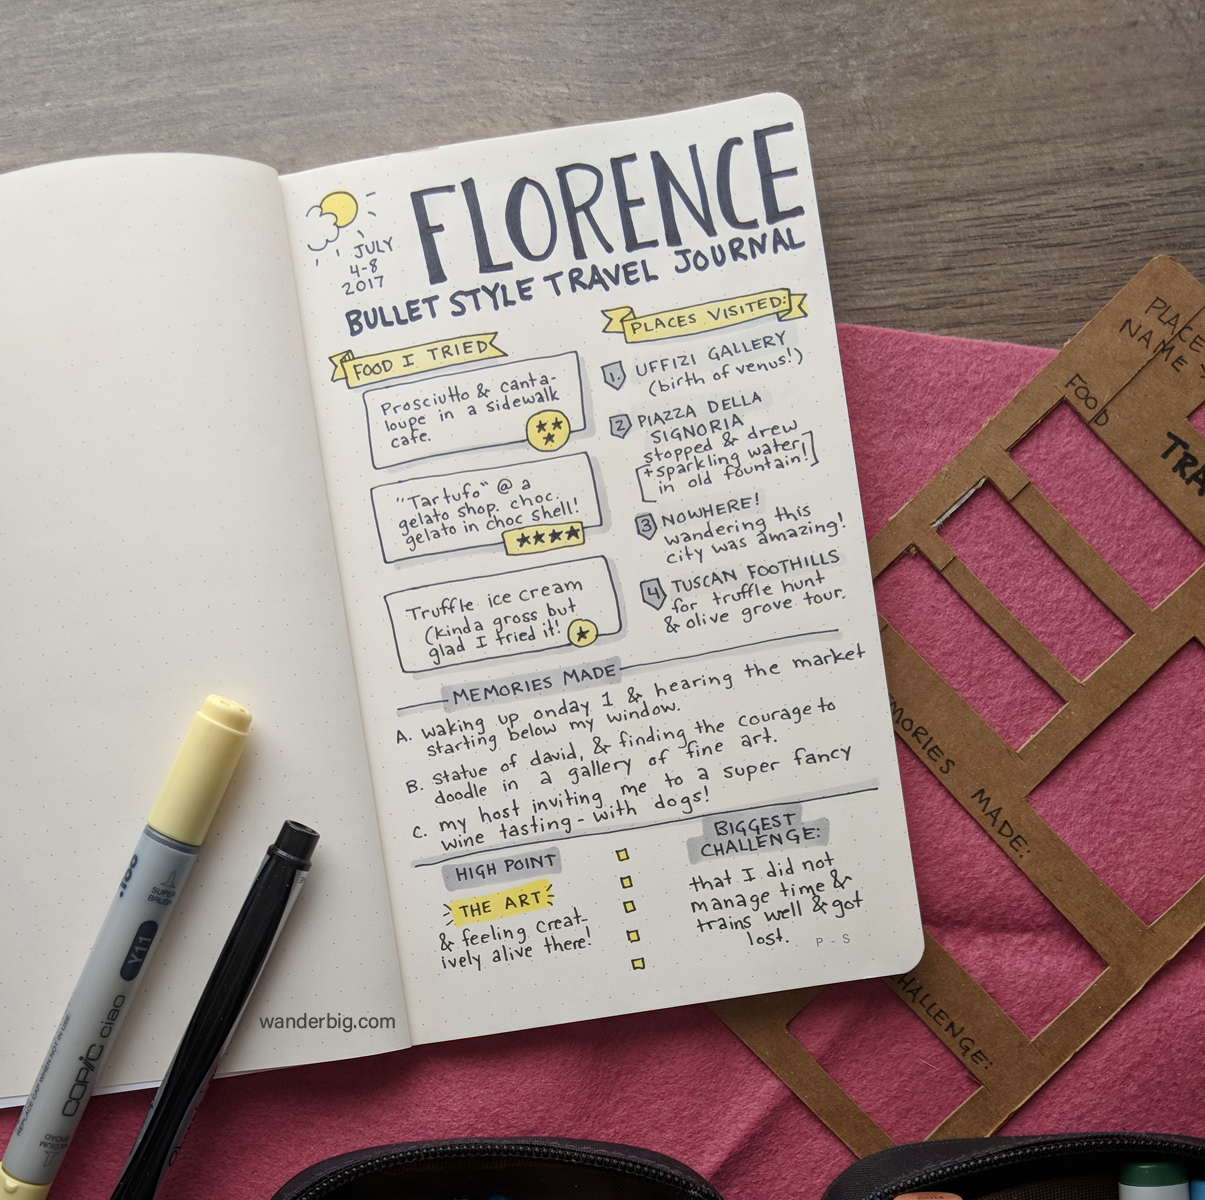 FLORENCE
JULY
4-8
2017
BULLET STYLE TRAVEL JOURNAL
FOOD I TRIED
Prosciutto & canta-
loupe in a sidewalk
cafe.
"Tartufo" @ a
gelato shop. choc.
gelato in choc shell!
Truffle ice cream
(kinda gross but
glad I tried it!
PLACES VISITED:
1. UFFIZI GALLERY
(birth of venus!)
2 PIAZZA DELLA
SIGNORIA
stopped & drew
+sparkling water
in old fountain!
3 NOWHERE!
wandering this
city was amazing!
4 TUSCAN FOOTHILLS
for truffle hunt
& olive grove tour.
MEMORIES MADE
A. waking up onday 1 & hearing the market
starting below my window.
B. statue of david, & finding the courage to
doodle in a gallery of fine art.
C. my host inviting me to a super fancy
wine tasting - with dogs!
HIGH POINT
THE ART
& feeling creat-
ively alive there!
BIGGEST
CHALLENGE:
that I did not
manage time &
trains well & got
lost.
P - S
PLACE
NAME
FOOD
TRA
MORIES MADE:
HALLENGE:
.100
SUPER
BRUSH
Y11
COPIC ciao
REPLACE CAP WHEN NOT IN USE
MEDIUM
BROAD
wanderbig.com